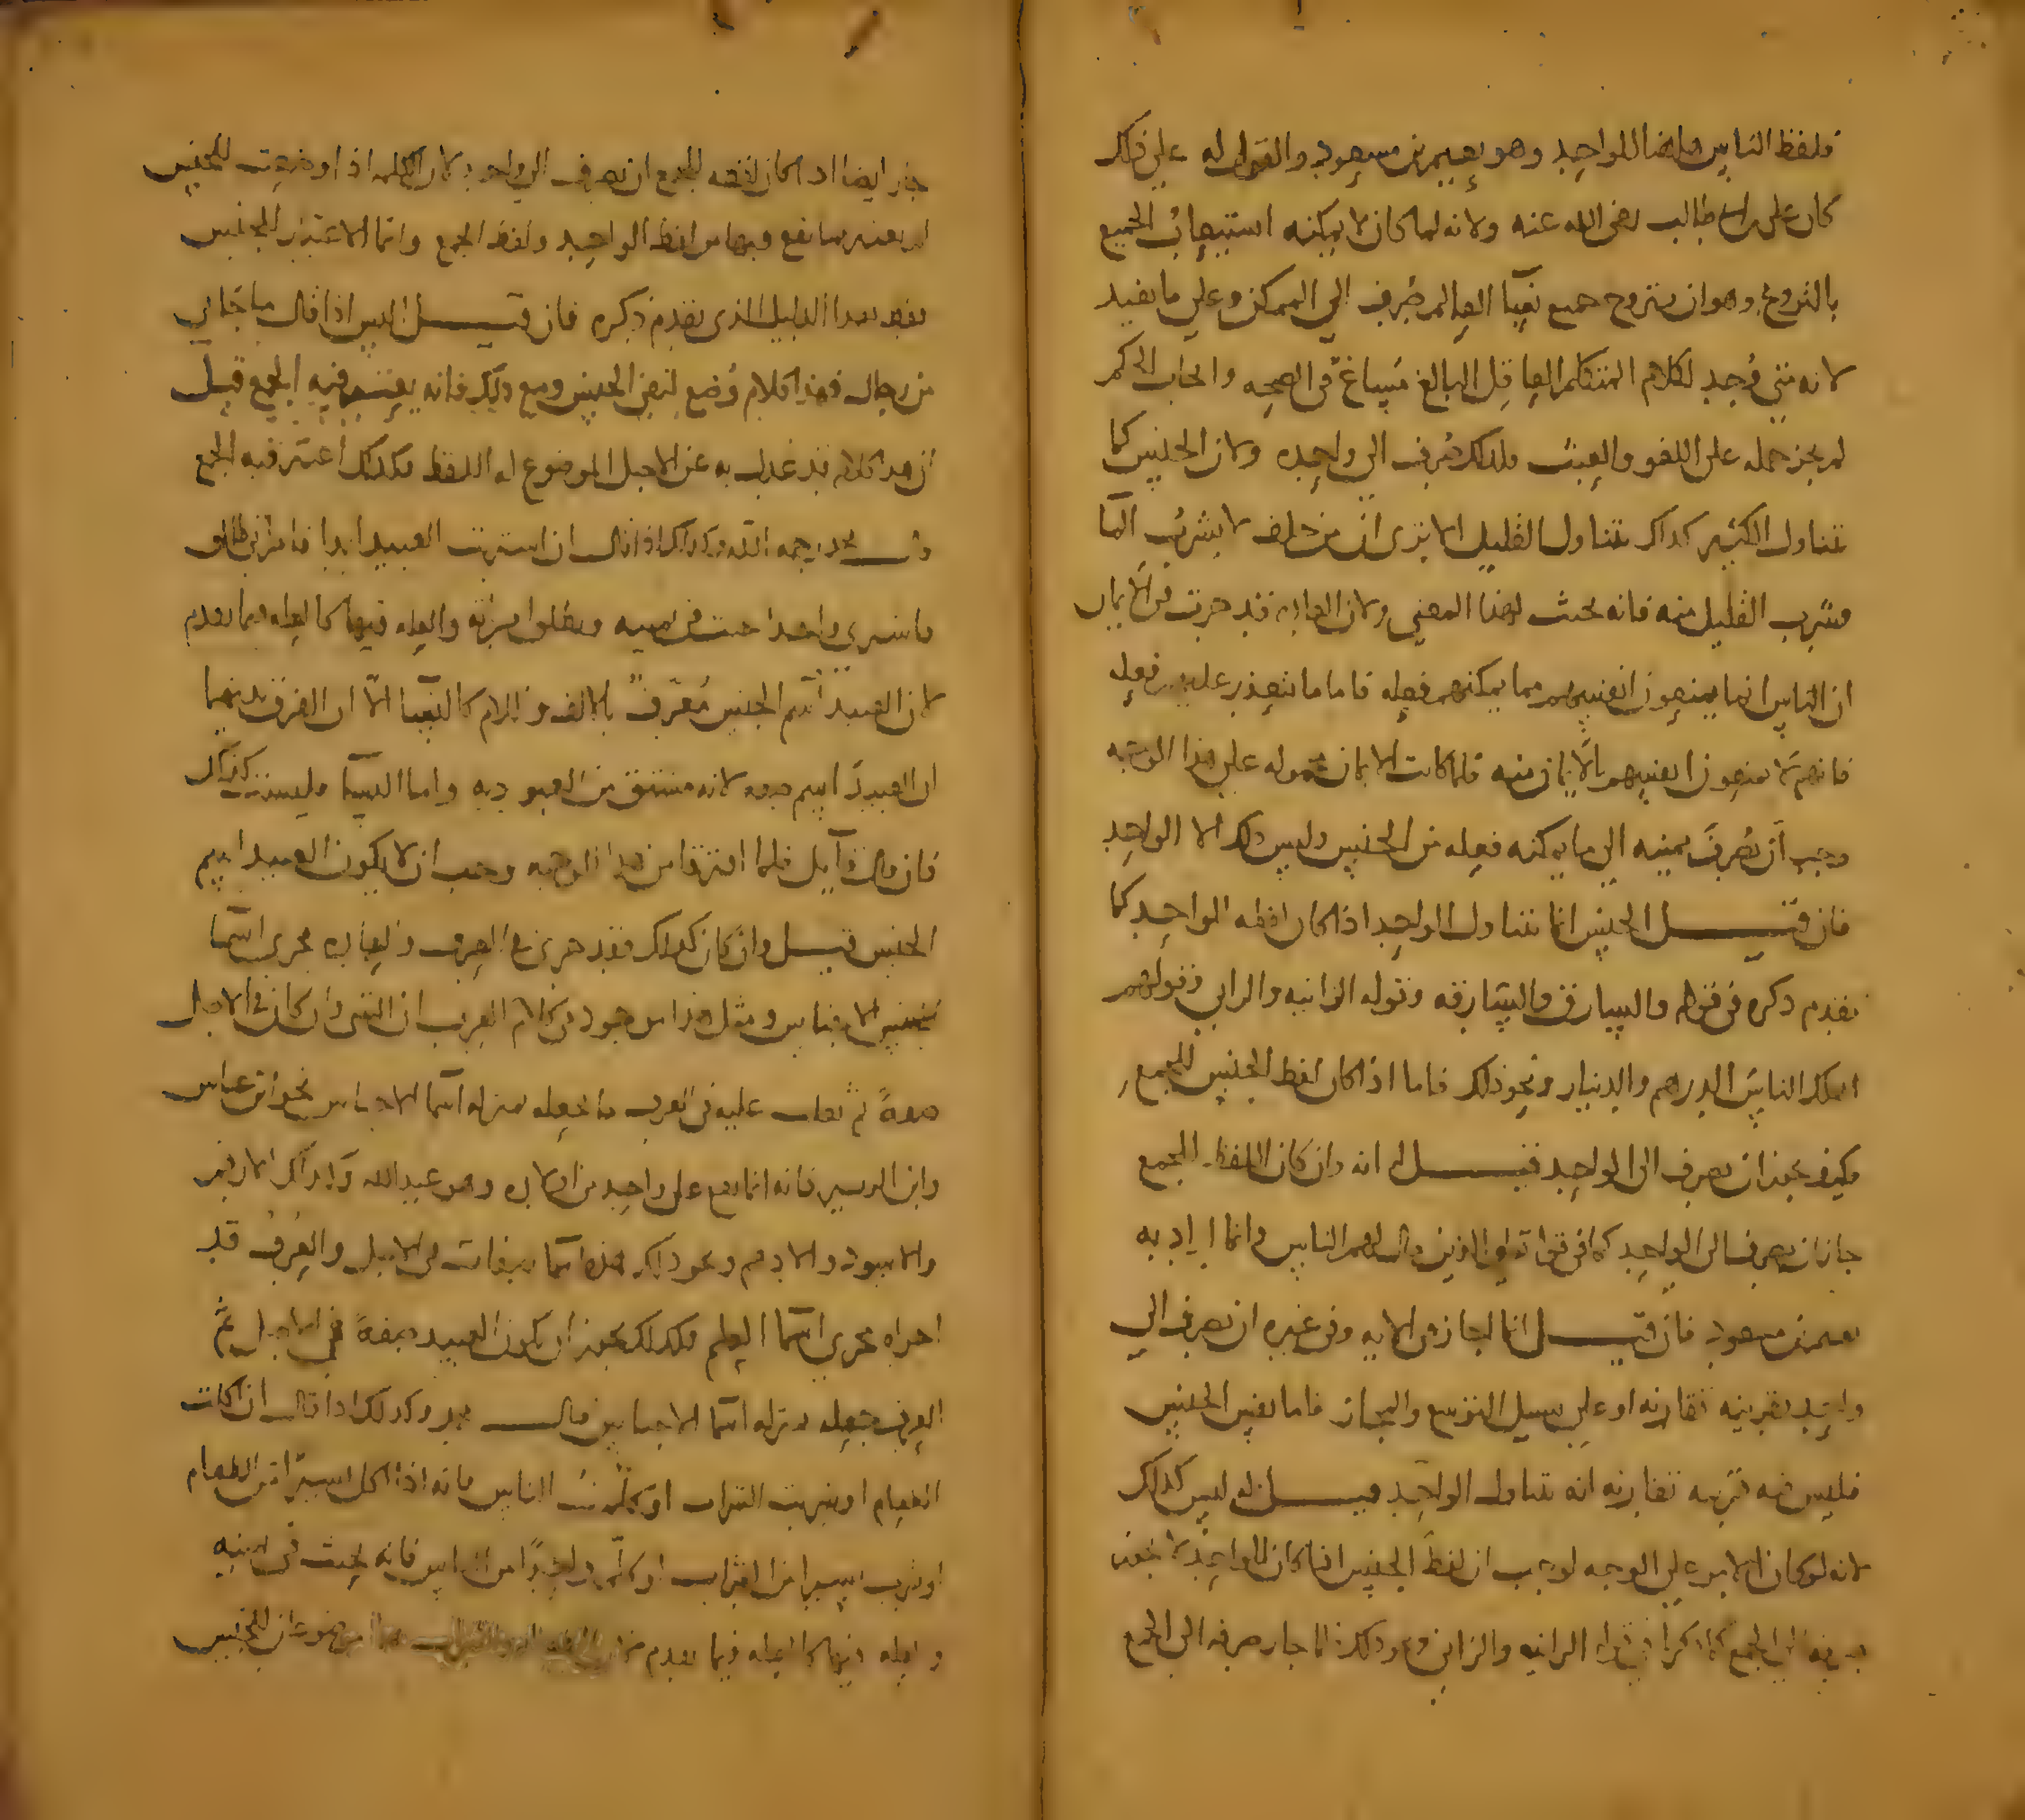 فلفظ الناس ههنا للواحد وهو نعيم بن مسعود والقول له على ذلك
كان على بن ابى طالب رضى الله عنه ولانه لما كان لا يمكنه استيعاب الجميع
بالتزوج وهو ان يتزوج جميع نسآ العالم صُرف الي الممكن وعلى ما يفيد
لانه متى وُجد لكلام المتكلم العاقل البالغ مَساغ فى الصحه وايجاب الحكم
لم يجز حمله على اللغو والعبث فلذلك صُرف الى واحده ولان الجنس كما
يتناول الكثير كذلك يتناول القليل الا ترى ان من حلف لا يشرب المآ
فشرب القليل منه فانه يحنث لهذا المعنى ولان العاده قد جرت فى الايمان
ان الناس انما يمنعون انفسهم مما يمكنهم فعله فاما ما يتعذر عليهم فعله
فانهم لا يمنعون انفسهم بالايمان منه فلما كانت الايمان محموله على هذا الوجه
وجب أن تُصرفَ يمينه الى ما يمكنه فعله من الجنس وليس ذلك الا الواحد
فان قيل الجنس انما يتناول الواحد اذا كان لفظه الواحد كما
تقدم ذكره فى قوله والسارق والسارقه وقوله الزانيه والزانى وقولهم
اهلك الناسَ الدرهم والدينار ونحو ذلك فاما اذا كان لفظ الجنس للجمع
فكيف يجوز ان يصرف الى الواحد قيل له انه وان كان اللفظ للجمع
جاز ان يصرف الى الواحد كما فى قوله تعالى الذين قال لهم الناس وانما اراد به
نعيم بن مسعود فان قيل انما جاز فى الايه وفى غيره ان يصرف الي
واحد بقرينه تقارنه او على سبيل التوسع والمجاز فاما نفس الجنس
فليس فيه قرينه تقارنه انه يتناول الواحد قيل له ليس كذلك
لانه لو كان الامر على الوجه لوجب ان لفظ الجنس اذا كان للواحد لا يجوز
صرفه الى الجمع كما ذكرنا فى قوله الزانيه والزانى ونحو ذلك فلما جاز صرفه الى الجمع
جاز ايضا اذا كان لفظه للجمع ان يصرف الى الواحد لان الكلمه اذا وضعت للجنس
لم يعتبر ما يقع فيها من لفظ الواحد ولفظ الجمع وانما الاعتبار للجنس
بهذا الدليل الذى تقدم ذكره فان قيل اليس اذا قال ما جانى
من رجال فهذا كلام وُضع لنفى الجنس ومع ذلك فانه يعتبر فيه الجمع قيل
ان هذا كلام قد عُدل به عن الاصل الموضوع له اللفظ فكذلك اعتبر فيه الجمع
قال محمد رحمه الله وكذلك اذا قال ان اشتريت العبيد ابدا فامراتى طالق
فاشترى واحدا حنث فى يمينه وتطلق امراته والعله فيها كالعله فيما تقدم
لان العبيد اسم الجنس مُعرّف بالالف واللام كالنسآ الا ان الفرق بينهما
ان العبيد اسم صفه لانه مشتق من العبوديه واما النسآ فليست كذلك
فان قال قآيل فلما افترقا من هذا الوجه وجب ان لا يكون العبيد اسم
الجنس قيل وان كان كذلك فقد جرى فى العرف والعاده مجرى اسمآ
الاجناس ومثل هذا موجود فى كلام العرب ان الشى وان كان فى الاصل
صفةً ثم تغلب عليه فى العرف ما تجعله بمنزله اسمآ الاجناس نحو ابن عباس
وابن الزبير فانه انما يقع على واحد من اولاده وهو عبدالله وكذلك الارقم
والاسود والادهم ونحو ذلك هذه اسمآ صفات فى الاصل والعُرفُ قد
اجراه مجرى اسمآ العلم فكذلك يجوز ان يكون العبيد صفةً فى الاصل ثم
العرف جعله بمنزله اسمآ الاجناس قال محمد وكذلك اذا قال ان اكلت
الطعام او شربت الشراب او كلّمت الناس فانه اذا اكل يسيرًا من الطعام
او شرب يسيرا من الشراب او كلّم واحدًا من الناس فانه يحنث فى يمينه
والعله فيها كالعله فيما تقدم موضوعان للجنس